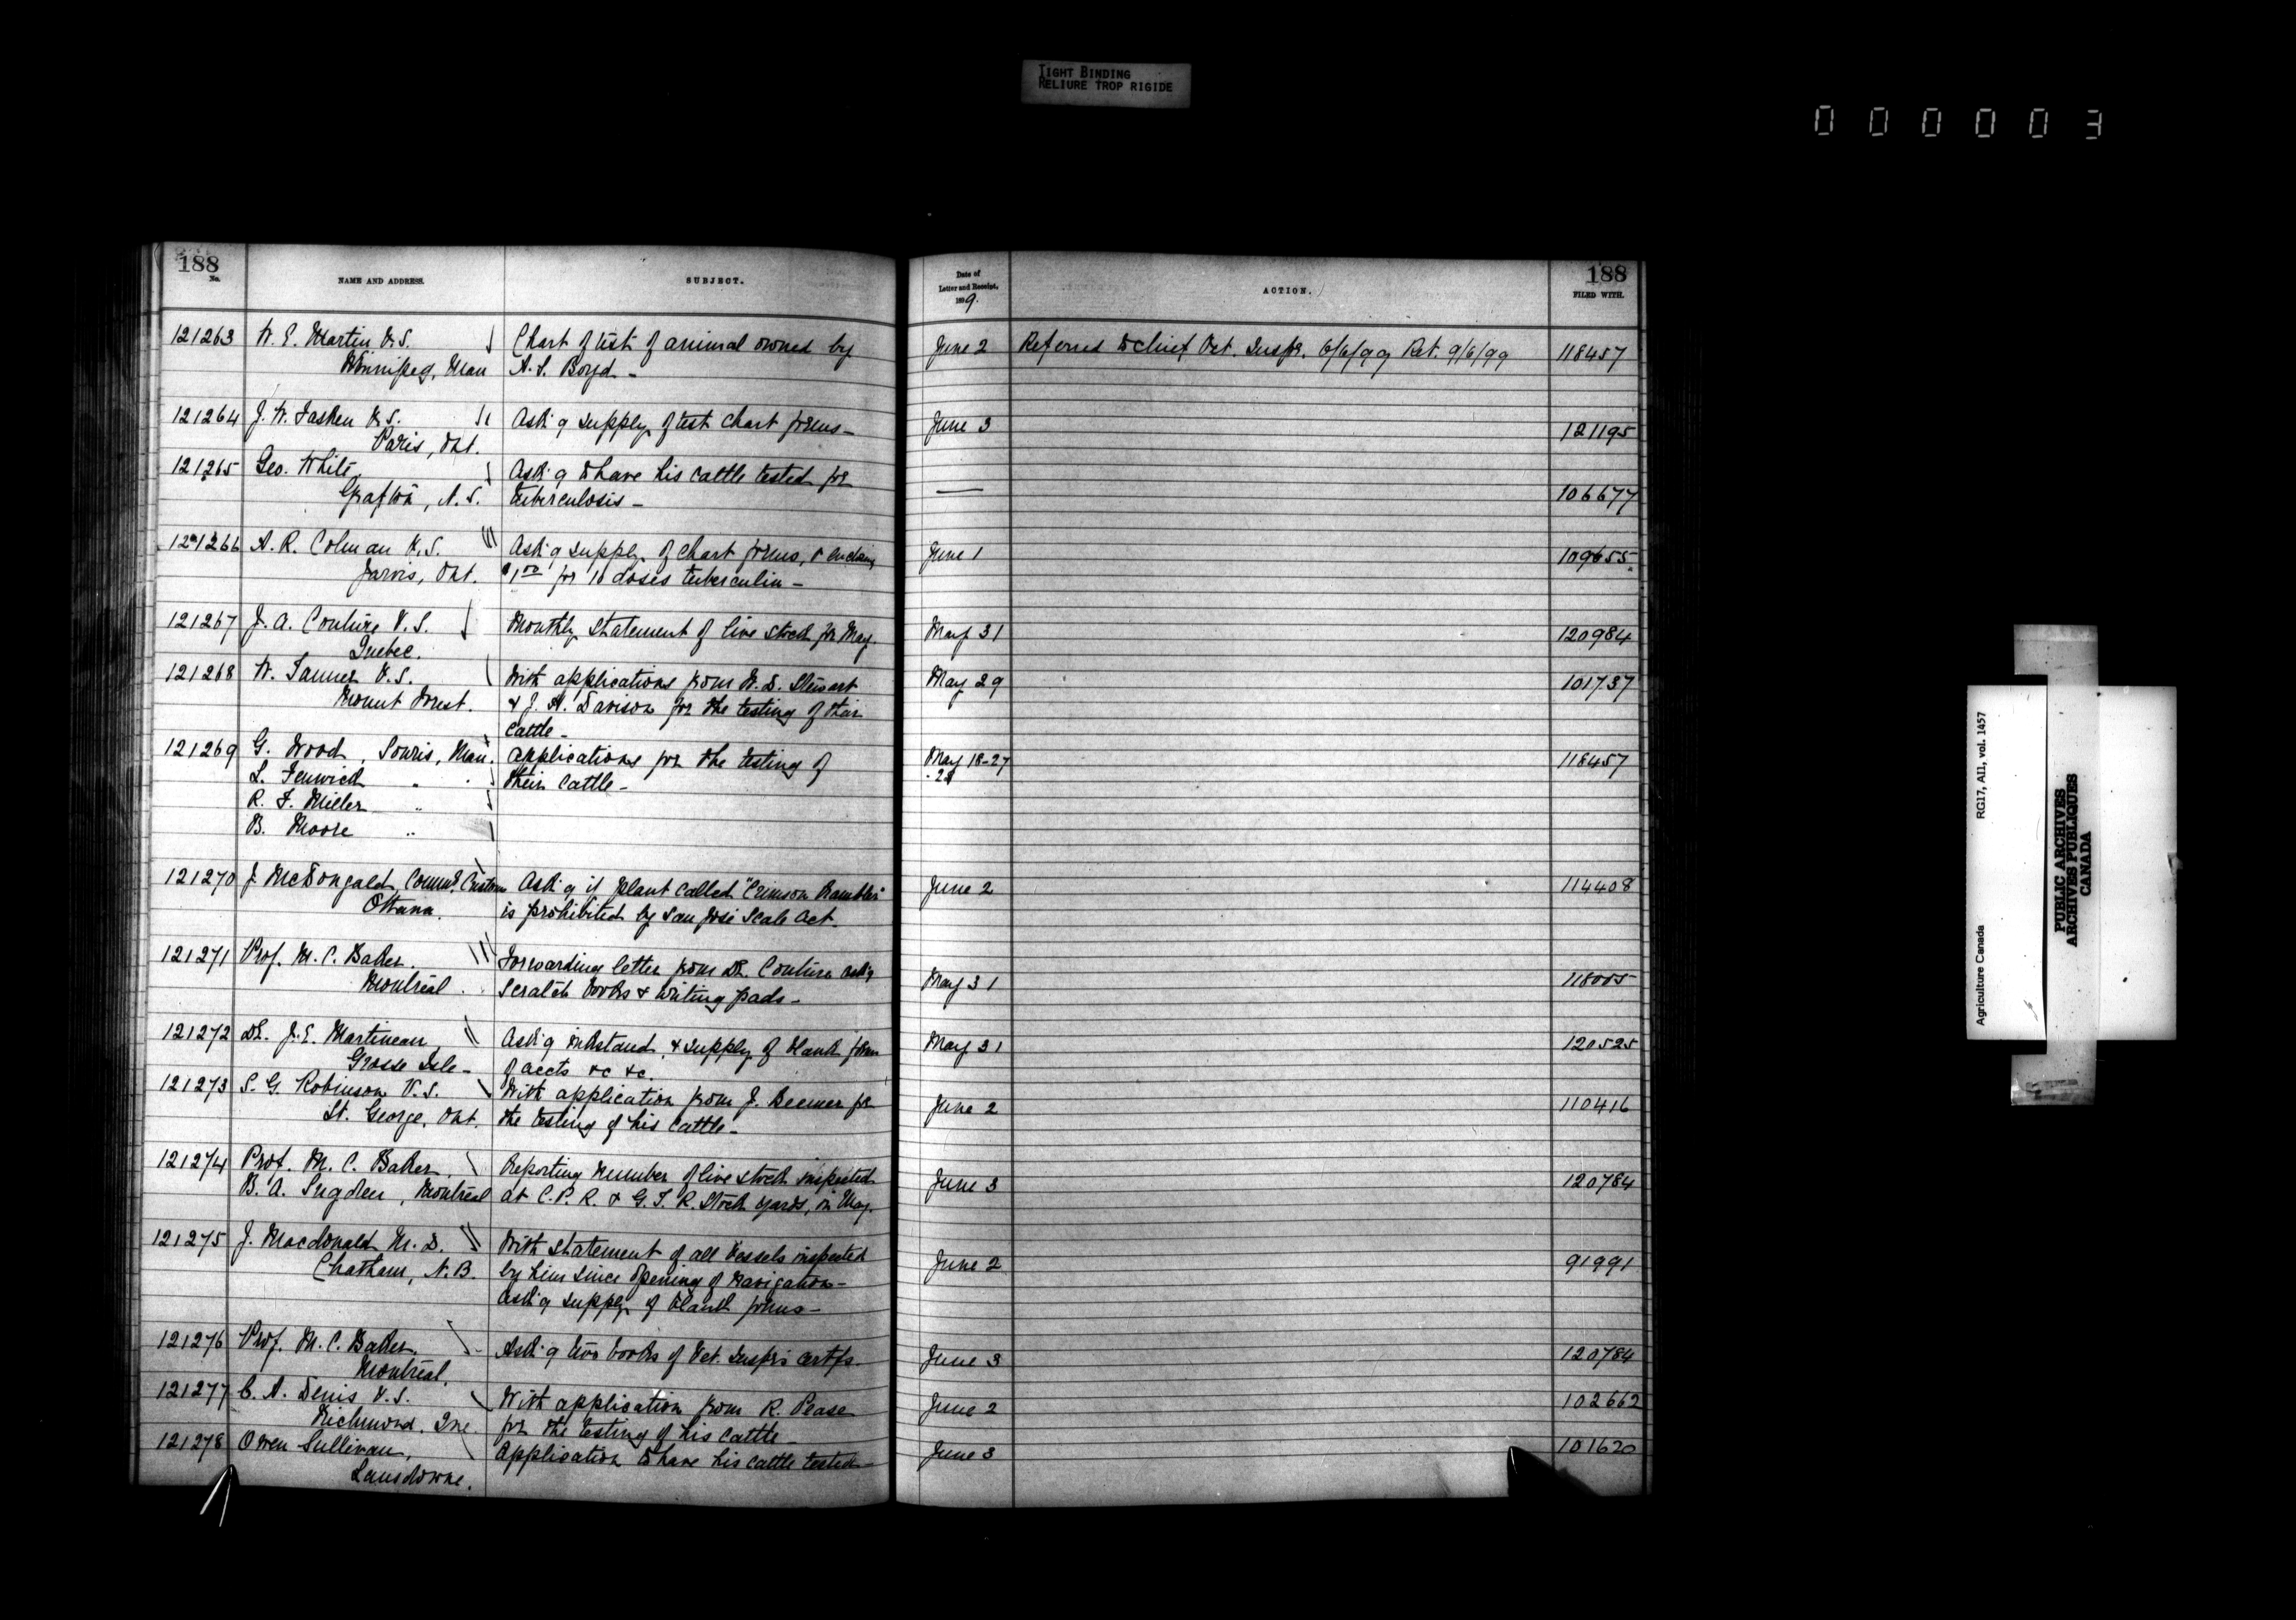 TIGHT BINDING
RELIURE TROP RIGIDE
000003
188
No.
NAME AND ADDRESS.
SUBJECT.
Date of
Letter and Receipt,
1899.
ACTION.
188
FILED WITH.
121263 W. E. Martin V.S. Chart of test of animal owned by June 2 Referred to Chief Vet. Inspr. 6/6/99 Ret. 9/6/99 118457
Winnipeg, Man A. S. Boyd -
121264 J. W. Tasken V.S. Ask'g supply of test chart forms - June 3 121195
Paris, Ont.
121265 Geo. White, Ask'g to have his cattle tested for
Grafton, N.S. tuberculosis - — 106677
121266 A. R. Colman V.S. Ask'g supply of chart forms, & enclosing June 1 109655
Jarvis, Ont. $1.00 for 10 doses tuberculin -
121267 J. A. Couture V.S. Monthly statement of live stock for May. May 31 120984
Quebec.
121268 W. Tanner V.S. With applications from W. D. Stewart May 29 101737
Mount Forest. & J. H. Davison for the testing of their
cattle -
121269 G. Wood, Souris, Man. Applications for the testing of May 18-27 118457
L. Fenwick " their cattle - -28
R. F. Miller "
B. Moore "
121270 J. McDougald, Commr. Customs Ask'g if plant called "Crimson Rambler" June 2 114408
Ottawa. is prohibited by San José Scale Act.
121271 Prof. M. C. Baker. Forwarding letter from Dr. Couture ask'g
Montreal. scratch books & writing pads - May 31 118005
121272 Dr. J. E. Martineau, Ask'g inkstand, & supply of blank forms May 31 120525
Grosse Isle - of accts &c &c.
121273 S. G. Robinson V.S. With application from J. Deemer for June 2 110416
St. George, Ont. the testing of his cattle -
121274 Prof. M. C. Baker, Reporting number of live stock inspected June 3 120784
B. A. Sugden, Montreal at C.P.R. & G.T.R. Stock yards, in May.
121275 J. Macdonald M.D. With statement of all vessels inspected June 2 91991
Chatham, N.B. by him since opening of navigation -
Ask'g supply of blank forms -
121276 Prof. M. C. Baker, Ask'g two books of Vet. Inspr's certfs - June 3 120784
Montreal.
121277 C. A. Denis V.S. With application from R. Pease June 2 102662
Richmond, Que. for the testing of his cattle -
121278 Owen Sullivan, Application to have his cattle tested - June 3 101620
Lansdowne.
Agriculture Canada RG17, AII, vol. 1457
PUBLIC ARCHIVES
ARCHIVES PUBLIQUES
CANADA